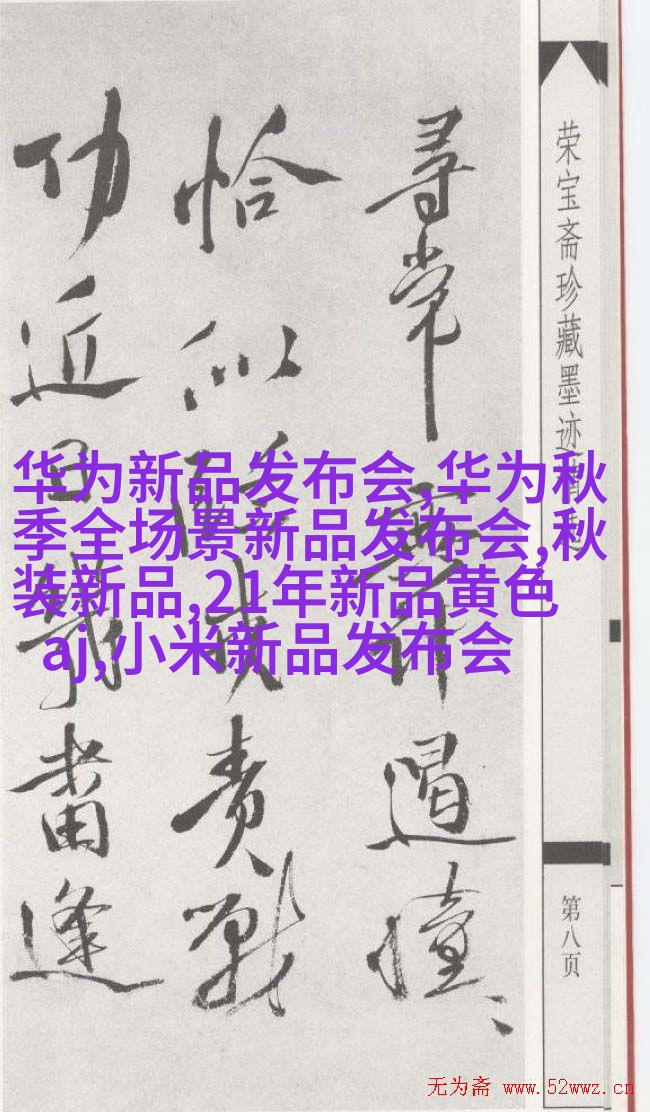 尋常
恰似責戰
功近日幾番逢
荣宝斋珍藏墨迹
第八页
华为新品发布会,华为秋
季全场景新品发布会,秋
装新品,21年新品黄色
aj,小米新品发布会
无为斋 www.52wwz.cn